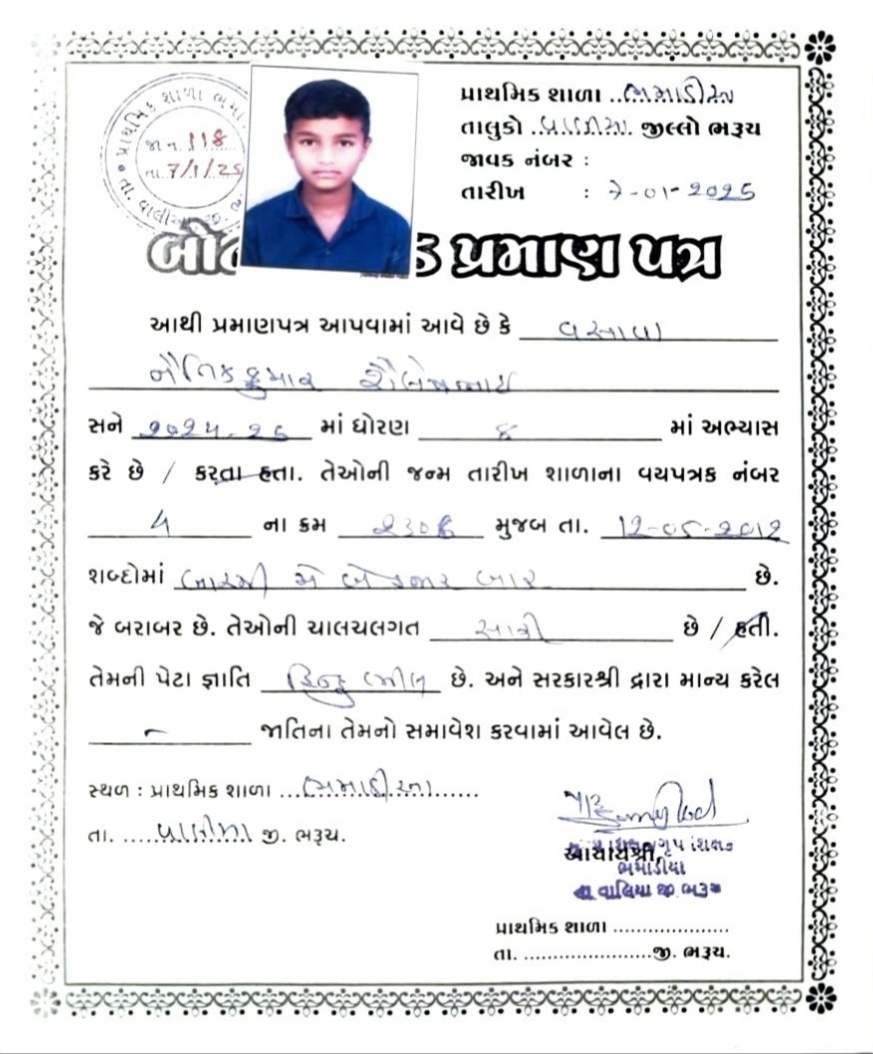 પ્રાથમિક શાળા ..ભમાડીયા
તાલુકો .વાલીયા. જીલ્લો ભરૂચ
જાવક નંબર :
તારીખ : ૭-૦૧-૨૦૨૫
પ્રાથમિક શાળા ભમા
જા.ન. 118
તા. 7/1/25
તા. વાલીયા જી. ભ
બોના ક પ્રમાણ પત્ર
આથી પ્રમાણપત્ર આપવામાં આવે છે કે વસાવા
નૈતિકકુમાર શૈલેષભાઈ
સને ૨૦૨૪-૨૫ માં ધોરણ માં અભ્યાસ
કરે છે / કરતા હતા. તેઓની જન્મ તારીખ શાળાના વયપત્રક નંબર
4 ના ક્રમ મુજબ તા. 12-05-2012
શબ્દોમાં બારમી મે બેહજાર બાર છે.
જે બરાબર છે. તેઓની ચાલચલગત સારી છે / હતી.
તેમની પેટા જ્ઞાતિ હિન્દુ ભીલ છે. અને સરકારશ્રી દ્વારા માન્ય કરેલ
- જાતિના તેમનો સમાવેશ કરવામાં આવેલ છે.
સ્થળ : પ્રાથમિક શાળા ...ભમાડીયા......
તા. .....વાલીયા જી. ભરૂચ.
આચાર્યશ્રી,
ભમાડીયા
તા વાલિયા જી. ભરૂચ
પ્રાથમિક શાળા .....................
તા. .......................જી. ભરૂચ.